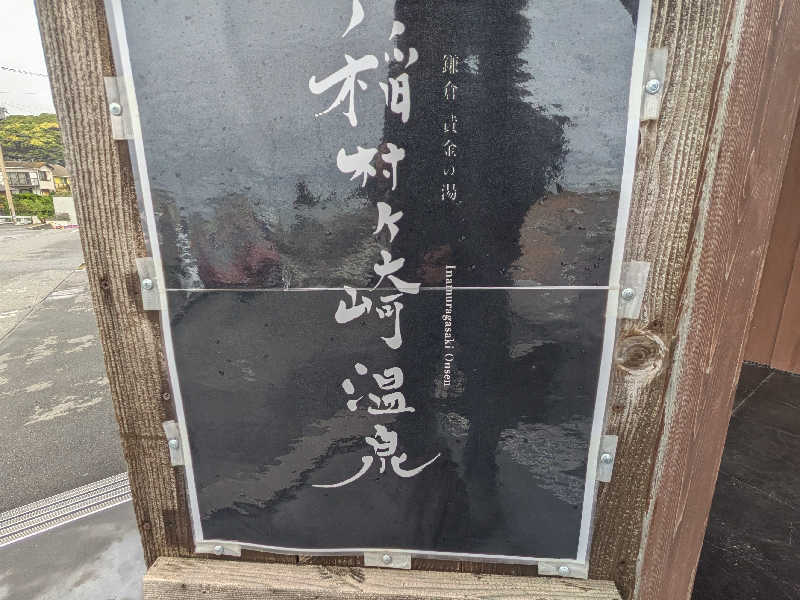 鎌倉 黄金の湯
稲村ケ崎温泉
Inamuragasaki Onsen